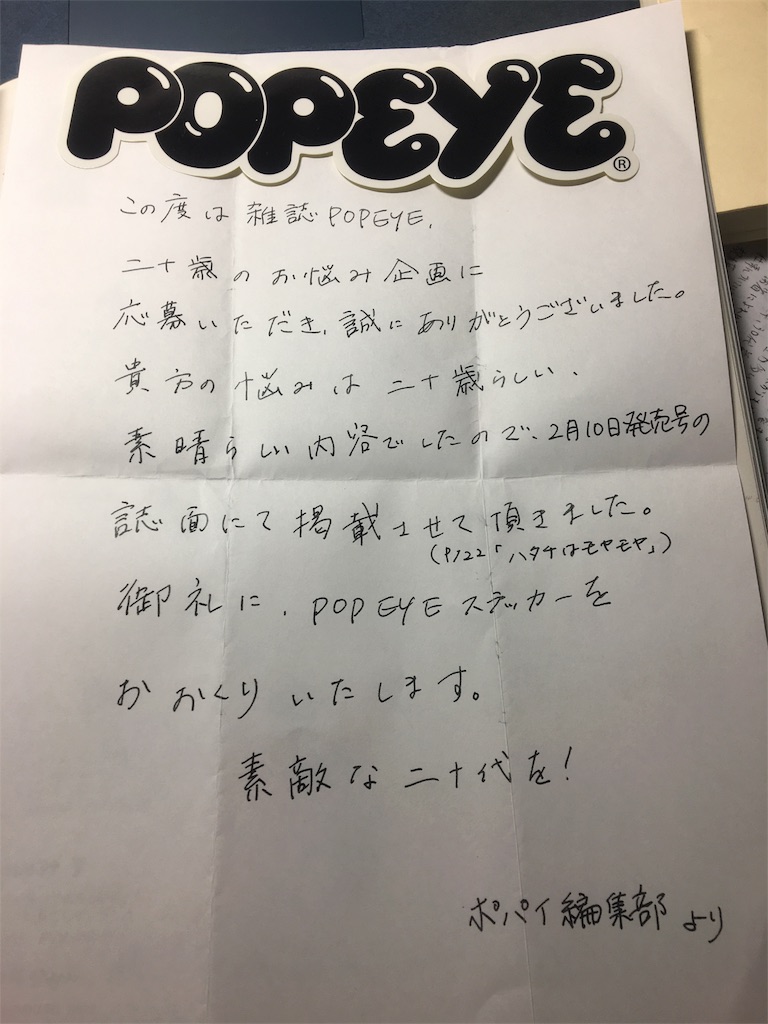 POPEYE®
この度は雑誌POPEYE、
二十歳のお悩み企画に
応募いただき、誠にありがとうございました。
貴方の悩みは二十歳らしい、
素晴らしい内容でしたので、2月10日発売号の
誌面にて掲載させて頂きました。
(P122「ハタチはモヤモヤ」)
御礼に、POPEYEステッカーを
おおくりいたします。
素敵な二十代を!
ポパイ編集部より